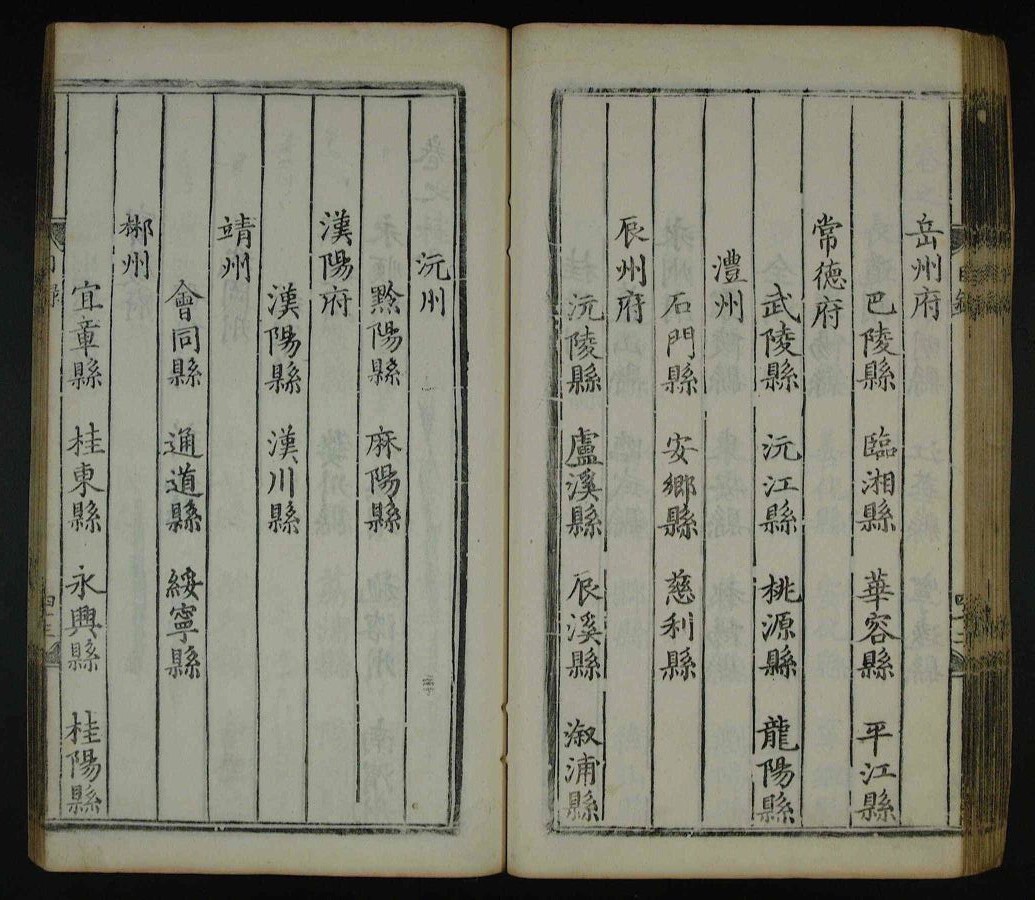 岳州府
巴陵縣 臨湘縣 華容縣 平江縣
常德府
武陵縣 沅江縣 桃源縣 龍陽縣
澧州
石門縣 安鄉縣 慈利縣
辰州府
沅陵縣 盧溪縣 辰溪縣 溆浦縣
沅州
黔陽縣 麻陽縣
漢陽府
漢陽縣 漢川縣
靖州
會同縣 通道縣 綏寧縣
郴州
宜章縣 桂東縣 永興縣 桂陽縣